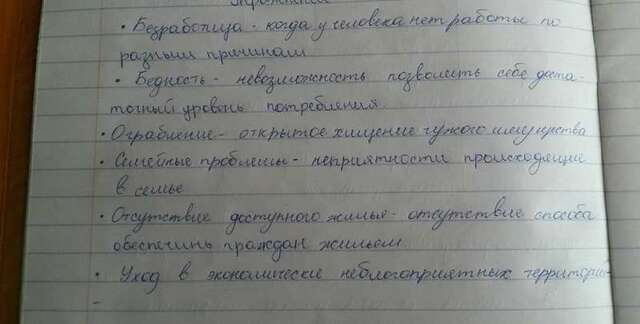 • Безработица - когда у человека нет работы по
разным причинам
• Бедность - невозможность позволить себе доста-
точный уровень потребления
• Ограбление - открытое хищение чужого имущества
• Семейные проблемы - неприятности происходящие
в семье
• Отсутствие доступного жилья - отсутствие способа
обеспечить граждан жильём
• Уход в экономические неблогоприятных территории-
-